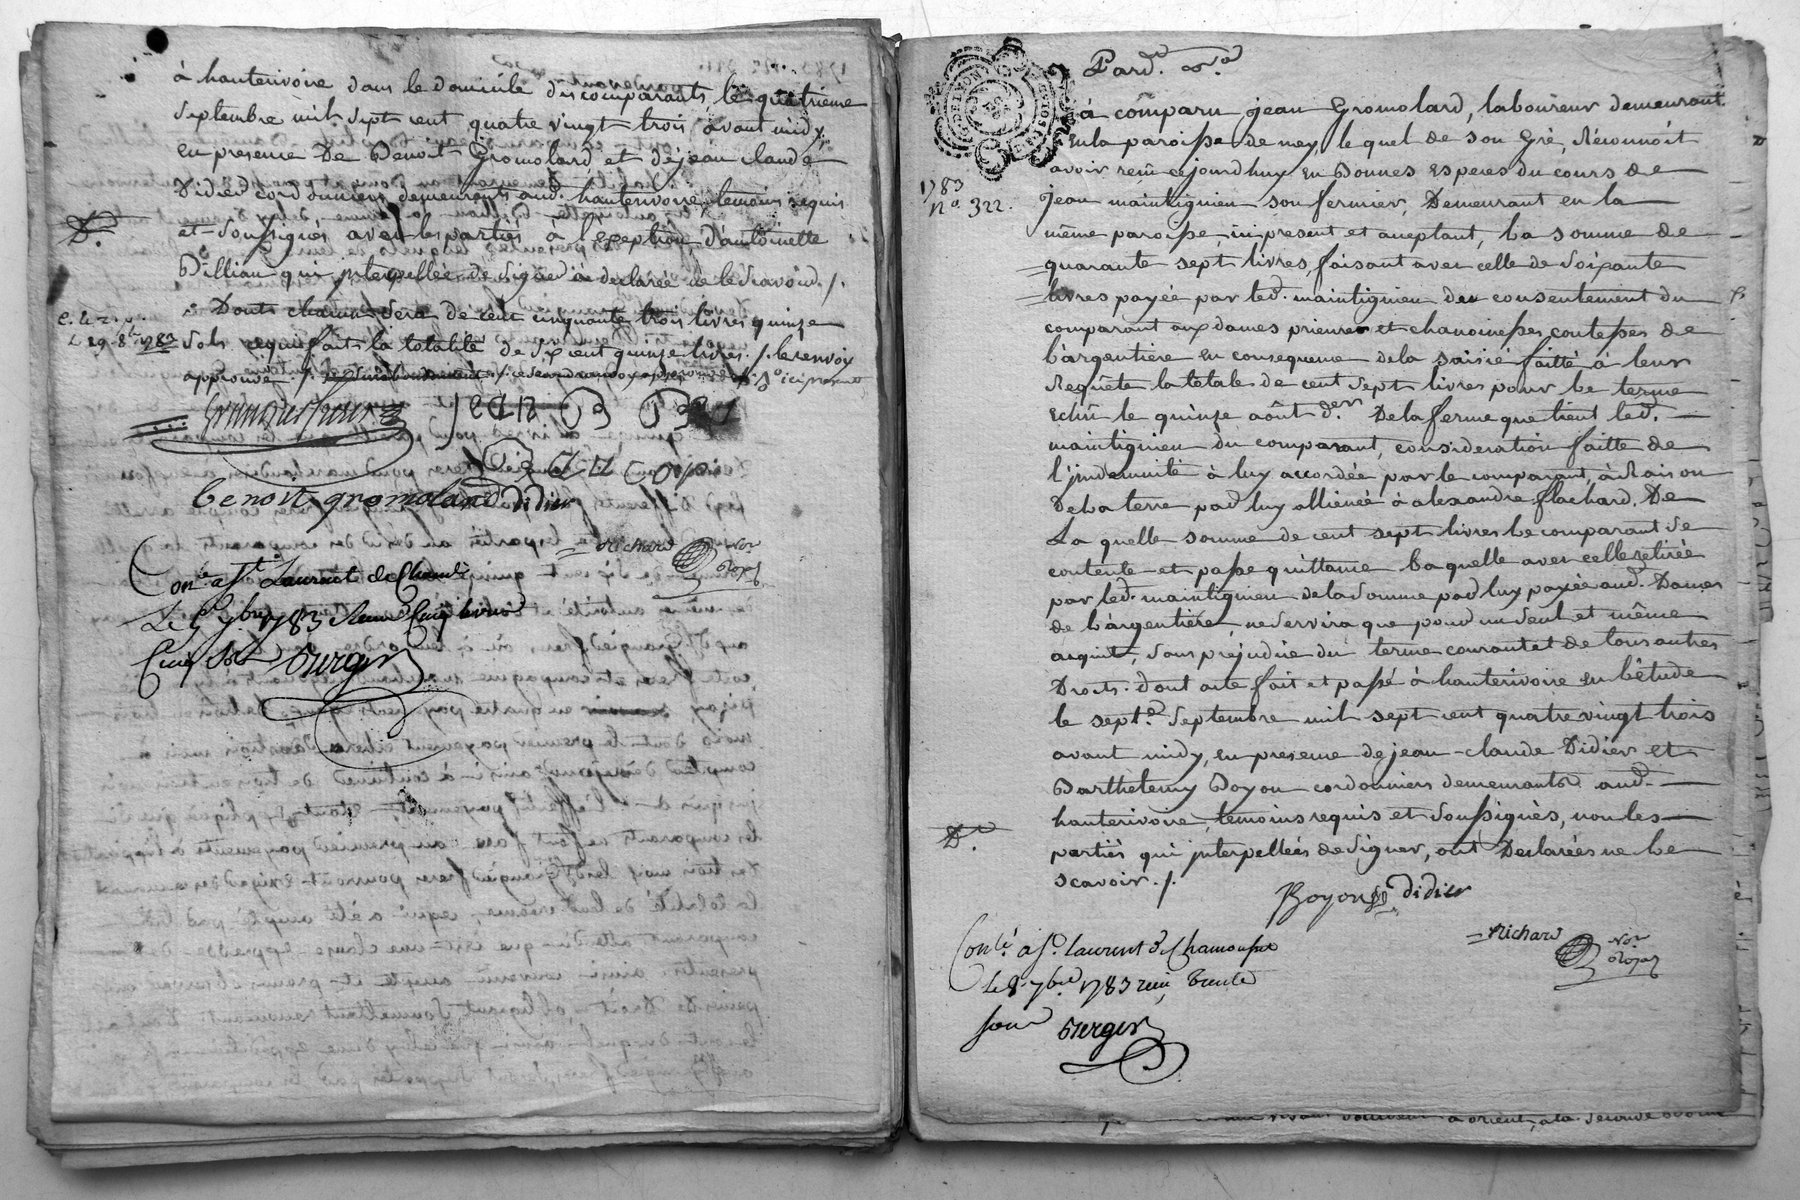 à hauterivoire dans le domicile des comparants, le quatrieme
Septembre mil sept cent quatre vingt trois avant midy,
en presence De Benoit Gromolard et de jean claude
Didier cordonniers demeurants aud. hauterivoire, temoins requis
et soussignés avec les parties à l'exeption d'antoinette
Billiau qui interpellée de signer a declarée ne le scavoir ./.
Dont chacun sera de cent cinquante trois livres quinze
Sols cequi fait la totalité de six cent quinze livres ./. le renvoy
approuvé ./.
D.
jean
benoit gromolard didier
richard nore
Conlé a St. Laurent de Chamt
Le 5 7bre 1783 Reçu Cinq livres
Cinq sols Burgin
Pard. nre
1783
no. 322.
à comparu jean Gromolard, laboureur demeurant
en la paroisse de mey, le quel de son Gré, Réconnoit
avoir reçu cejourdhuy en Bonnes Especes du cours de
jean maintignieu son fermier, Demeurant en la
même paroisse, ici present et aceptant, la somme de
quarante sept livres, faisant avec celle de soixante
livres payée par led. maintignieu du consentement du
comparant aux dames prieure et chanoinesses contesses de
l'argentiére en consequence dela saisié faitté à leur
Requéte la totale de cent sept livres pour le terme
echû le quinze août der. De la ferme que tient led.
maintignieu du comparant, consideration faitte de
l'jndemnité à luy accordée par le comparant, à Raison
De la terre par luy alliénéé à alexandre flachard. De
La quelle somme de cent sept livres le comparant se
contente et passe quittance la quelle avec celle retirée
par led. maintignieu de la somme par luy payée aud. Dames
de l'argentiére, ne servira que pour un seul et même
acquit, sans préjudice du terme courant et de tous autres
Droits. dont acte fait et passé à hauterivoire en l'êtude
le sept.e Septembre mil sept cent quatre vingt trois
avant midy, en presence de jean-claude Didier et
Barthelemy Boyon cordonniers demeurants aud.
hauterivoire, temoins requis et soussignés, non les
partiés qui jnterpelleés de signer, ont Declareés ne le
scavoir ./.
D.
Boyon didier
richard nore
Conlé a St. Laurent de Chamousset
Le 8 7bre 1783 reçu trente
sous Burgin